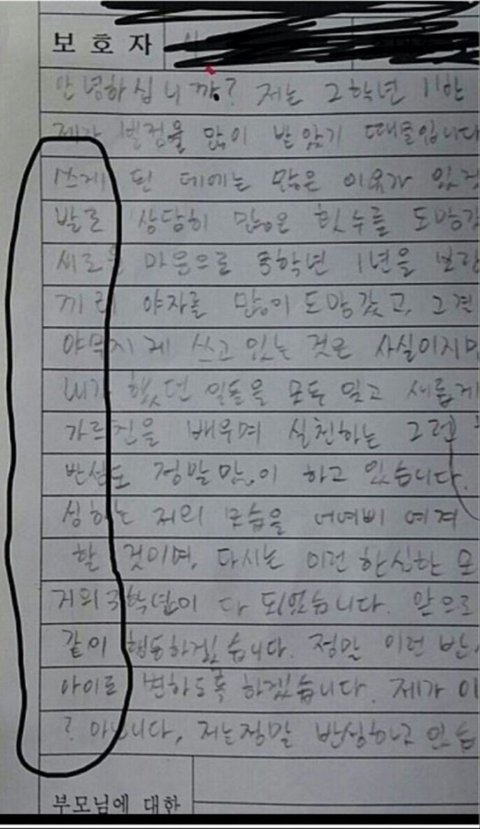 보호자
안녕하십니까? 저는 2학년 11반
제가 벌점을 많이 받았기 때문입니다
쓰게 된 데에는 많은 이유가 있겠
발로 상당히 많은 횟수를 도망갔
새로운 마음으로 3학년 1년을 보람
끼리 야자를 많이 도망갔고, 그결
야무지게 쓰고 있는 것은 사실이지만
내가 했던 일들을 모두 잊고 새롭게
가르친을 배우며 실천하는 그런
반성도 정말많이 하고 있습니다.
성하는 저의 모습을 어여삐 여겨
할 것이며, 다시는 이런 한심한 모
거의 3학년이 다 되었습니다. 앞으로
같이 행동하겠습니다. 정말 이런 반
아이로 변하도록 하겠습니다. 제가 이
? 아닙니다, 저는정말 반성하고 있습
부모님에 대한